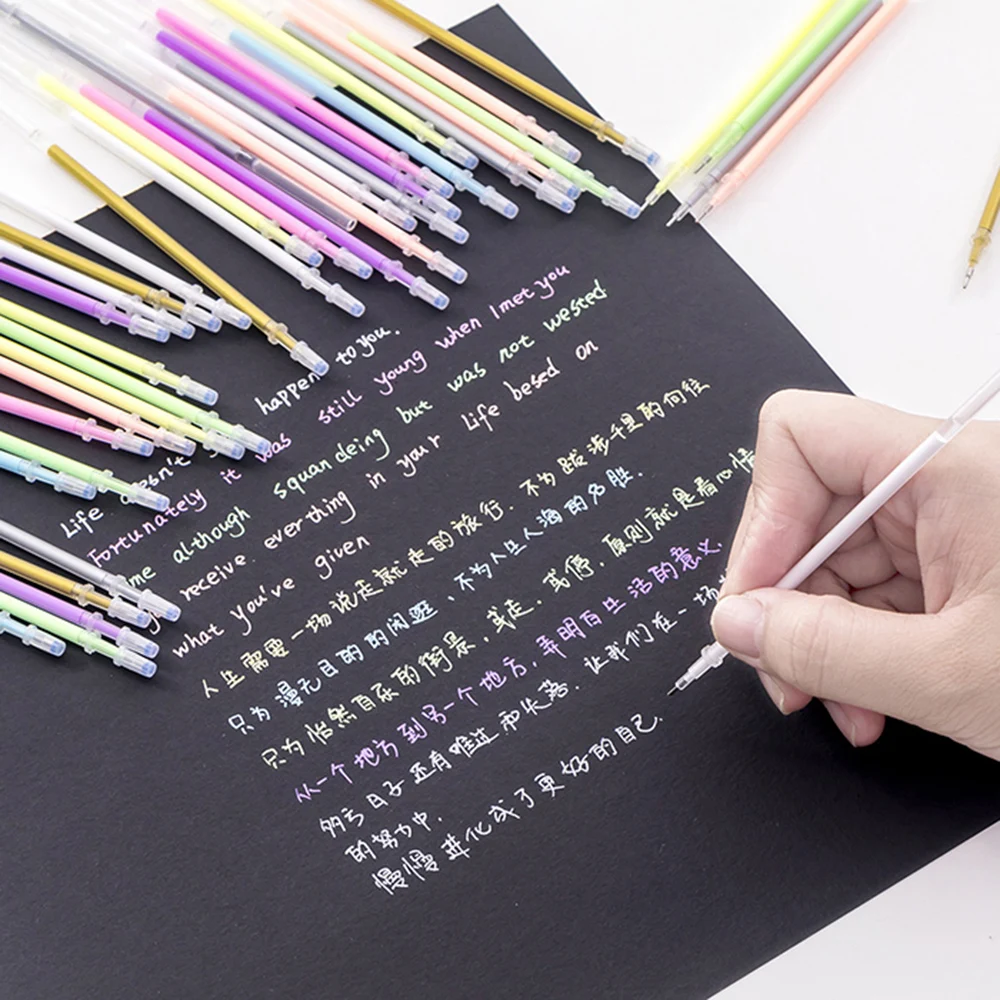 Life happen to you.
Fortunately it was still young when I met you
although squandeing but was not wested
receive everything in your life besed on
what you've given
人生需要一场说走就走的旅行. 不为跋涉千里的向往
只为漫无目的的闲逛、不为人生人海的名胜.
只为怡然自乐的街景,或走、或停,原则就是看心情
从一个地方到另一个地方,弄明白生活的意义.
多亏日子还有难过和失落. 让我们在一场
的努力中.
慢慢进化成了更好的自己.